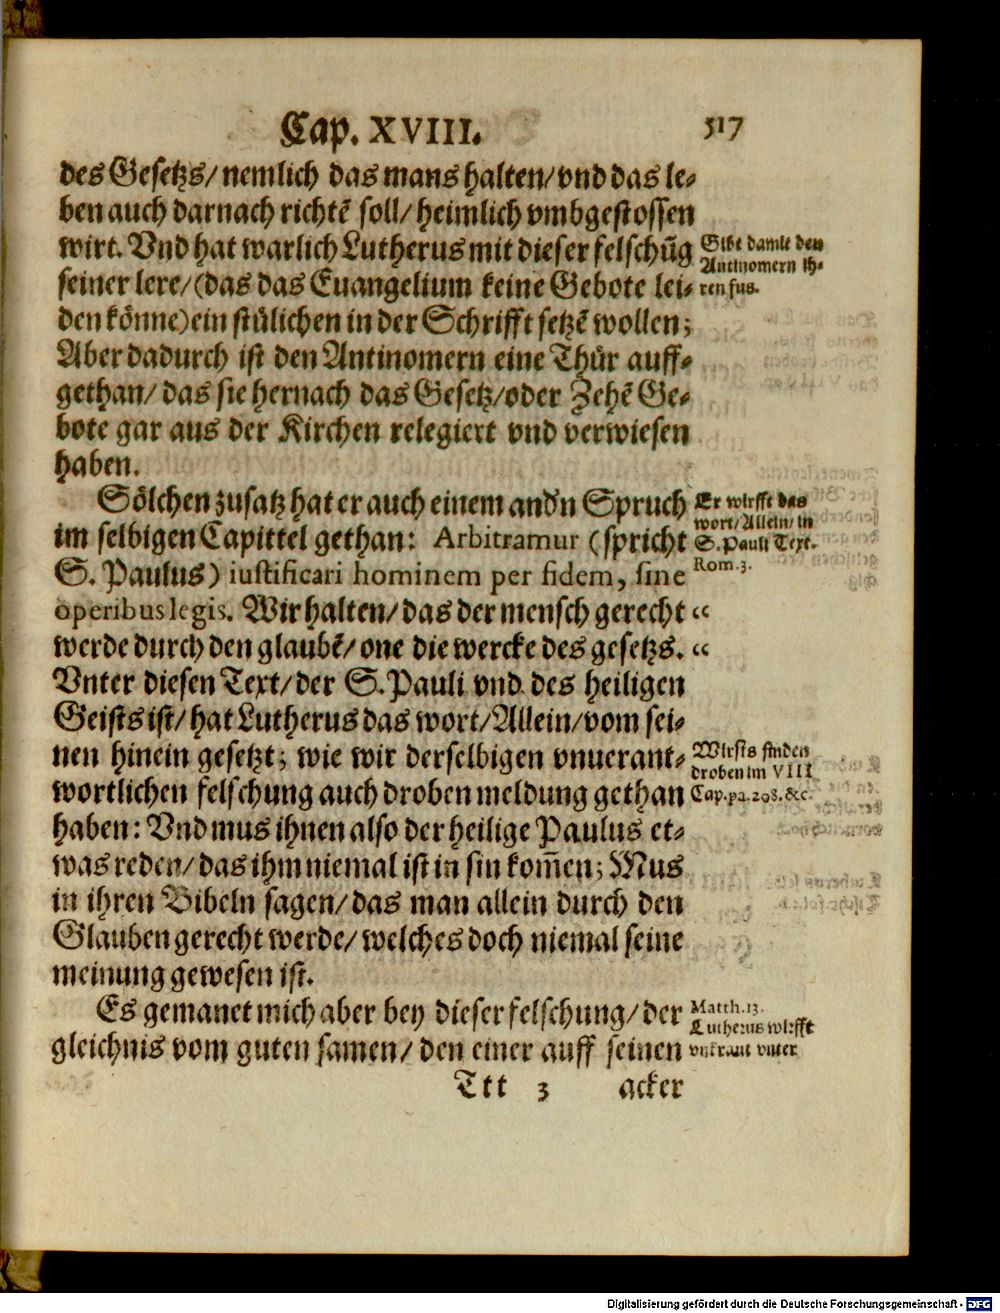 Cap. XVIII. 517
des Gesetzs/ nemlich das mans halten/ vnd das le-
ben auch darnach richtē soll/ heimlich vmbgestossen
wirt. Vnd hat warlich Lutherus mit dieser felschūg
seiner lere/ (das das Euangelium keine Gebote lei-
den könne) ein stülichen in der Schrifft setzē wollen;
Aber dadurch ist den Antinomern eine Thür auff-
gethan/ das sie hernach das Gesetz/ oder Zehē Ge-
bote gar aus der Kirchen relegiert vnd verwiesen
haben.
Gibt damit den
Antinomern ih-
ren fus.
Sölchen zusatz hat er auch einem andn Spruch
im selbigen Capittel gethan: Arbitramur (spricht
S. Paulus) iustificari hominem per fidem, sine
operibus legis. Wir halten/ das der mensch gerecht “
werde durch den glaubē/ one die wercke des gesetzs. “
Vnter diesen Text/ der S. Pauli vnd des heiligen
Geists ist/ hat Lutherus das wort/ Allein/ vom sei-
nen hinein gesetzt; wie wir derselbigen vnuerant-
wortlichen felschung auch droben meldung gethan
haben: Vnd mus ihnen also der heilige Paulus et-
was reden/ das ihm niemal ist in sin kom̄en; Mus
in ihren Bibeln sagen/ das man allein durch den
Glauben gerecht werde/ welches doch niemal seine
meinung gewesen ist.
Er wirfft das
wort/ Allein/ in
S. Pauli Text.
Rom. 3.
Wirsts finden
droben im VIII
Cap. pa. 298. &c.
Es gemanet mich aber bey dieser felschung/ der
gleichnis vom guten samen/ den einer auff seinen
Matth. 13.
Lutherus wirfft
vnkraut vnter
Ttt 3 acker
Digitalisierung gefördert durch die Deutsche Forschungsgemeinschaft - DFG